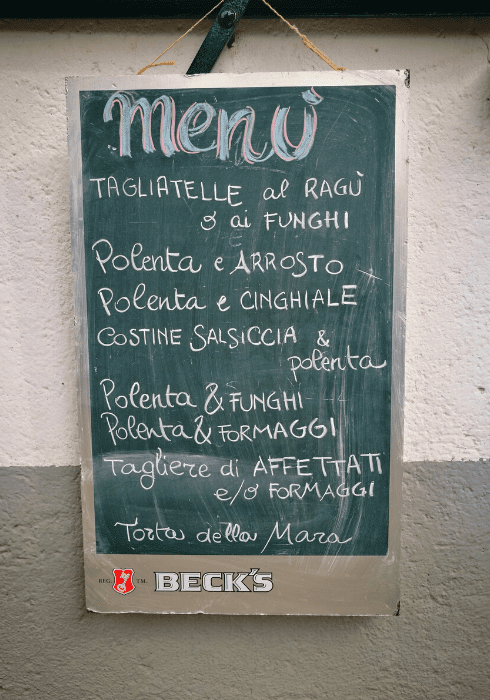 menù
TAGLIATELLE al RAGÙ
o ai FUNGHI
Polenta e ARROSTO
Polenta e CINGHIALE
COSTINE SALSICCIA &
polenta
Polenta & FUNGHI
Polenta & FORMAGGI
Tagliere di AFFETTATI
e/o FORMAGGI
Torta della Mara
REG. T.M. BECK'S